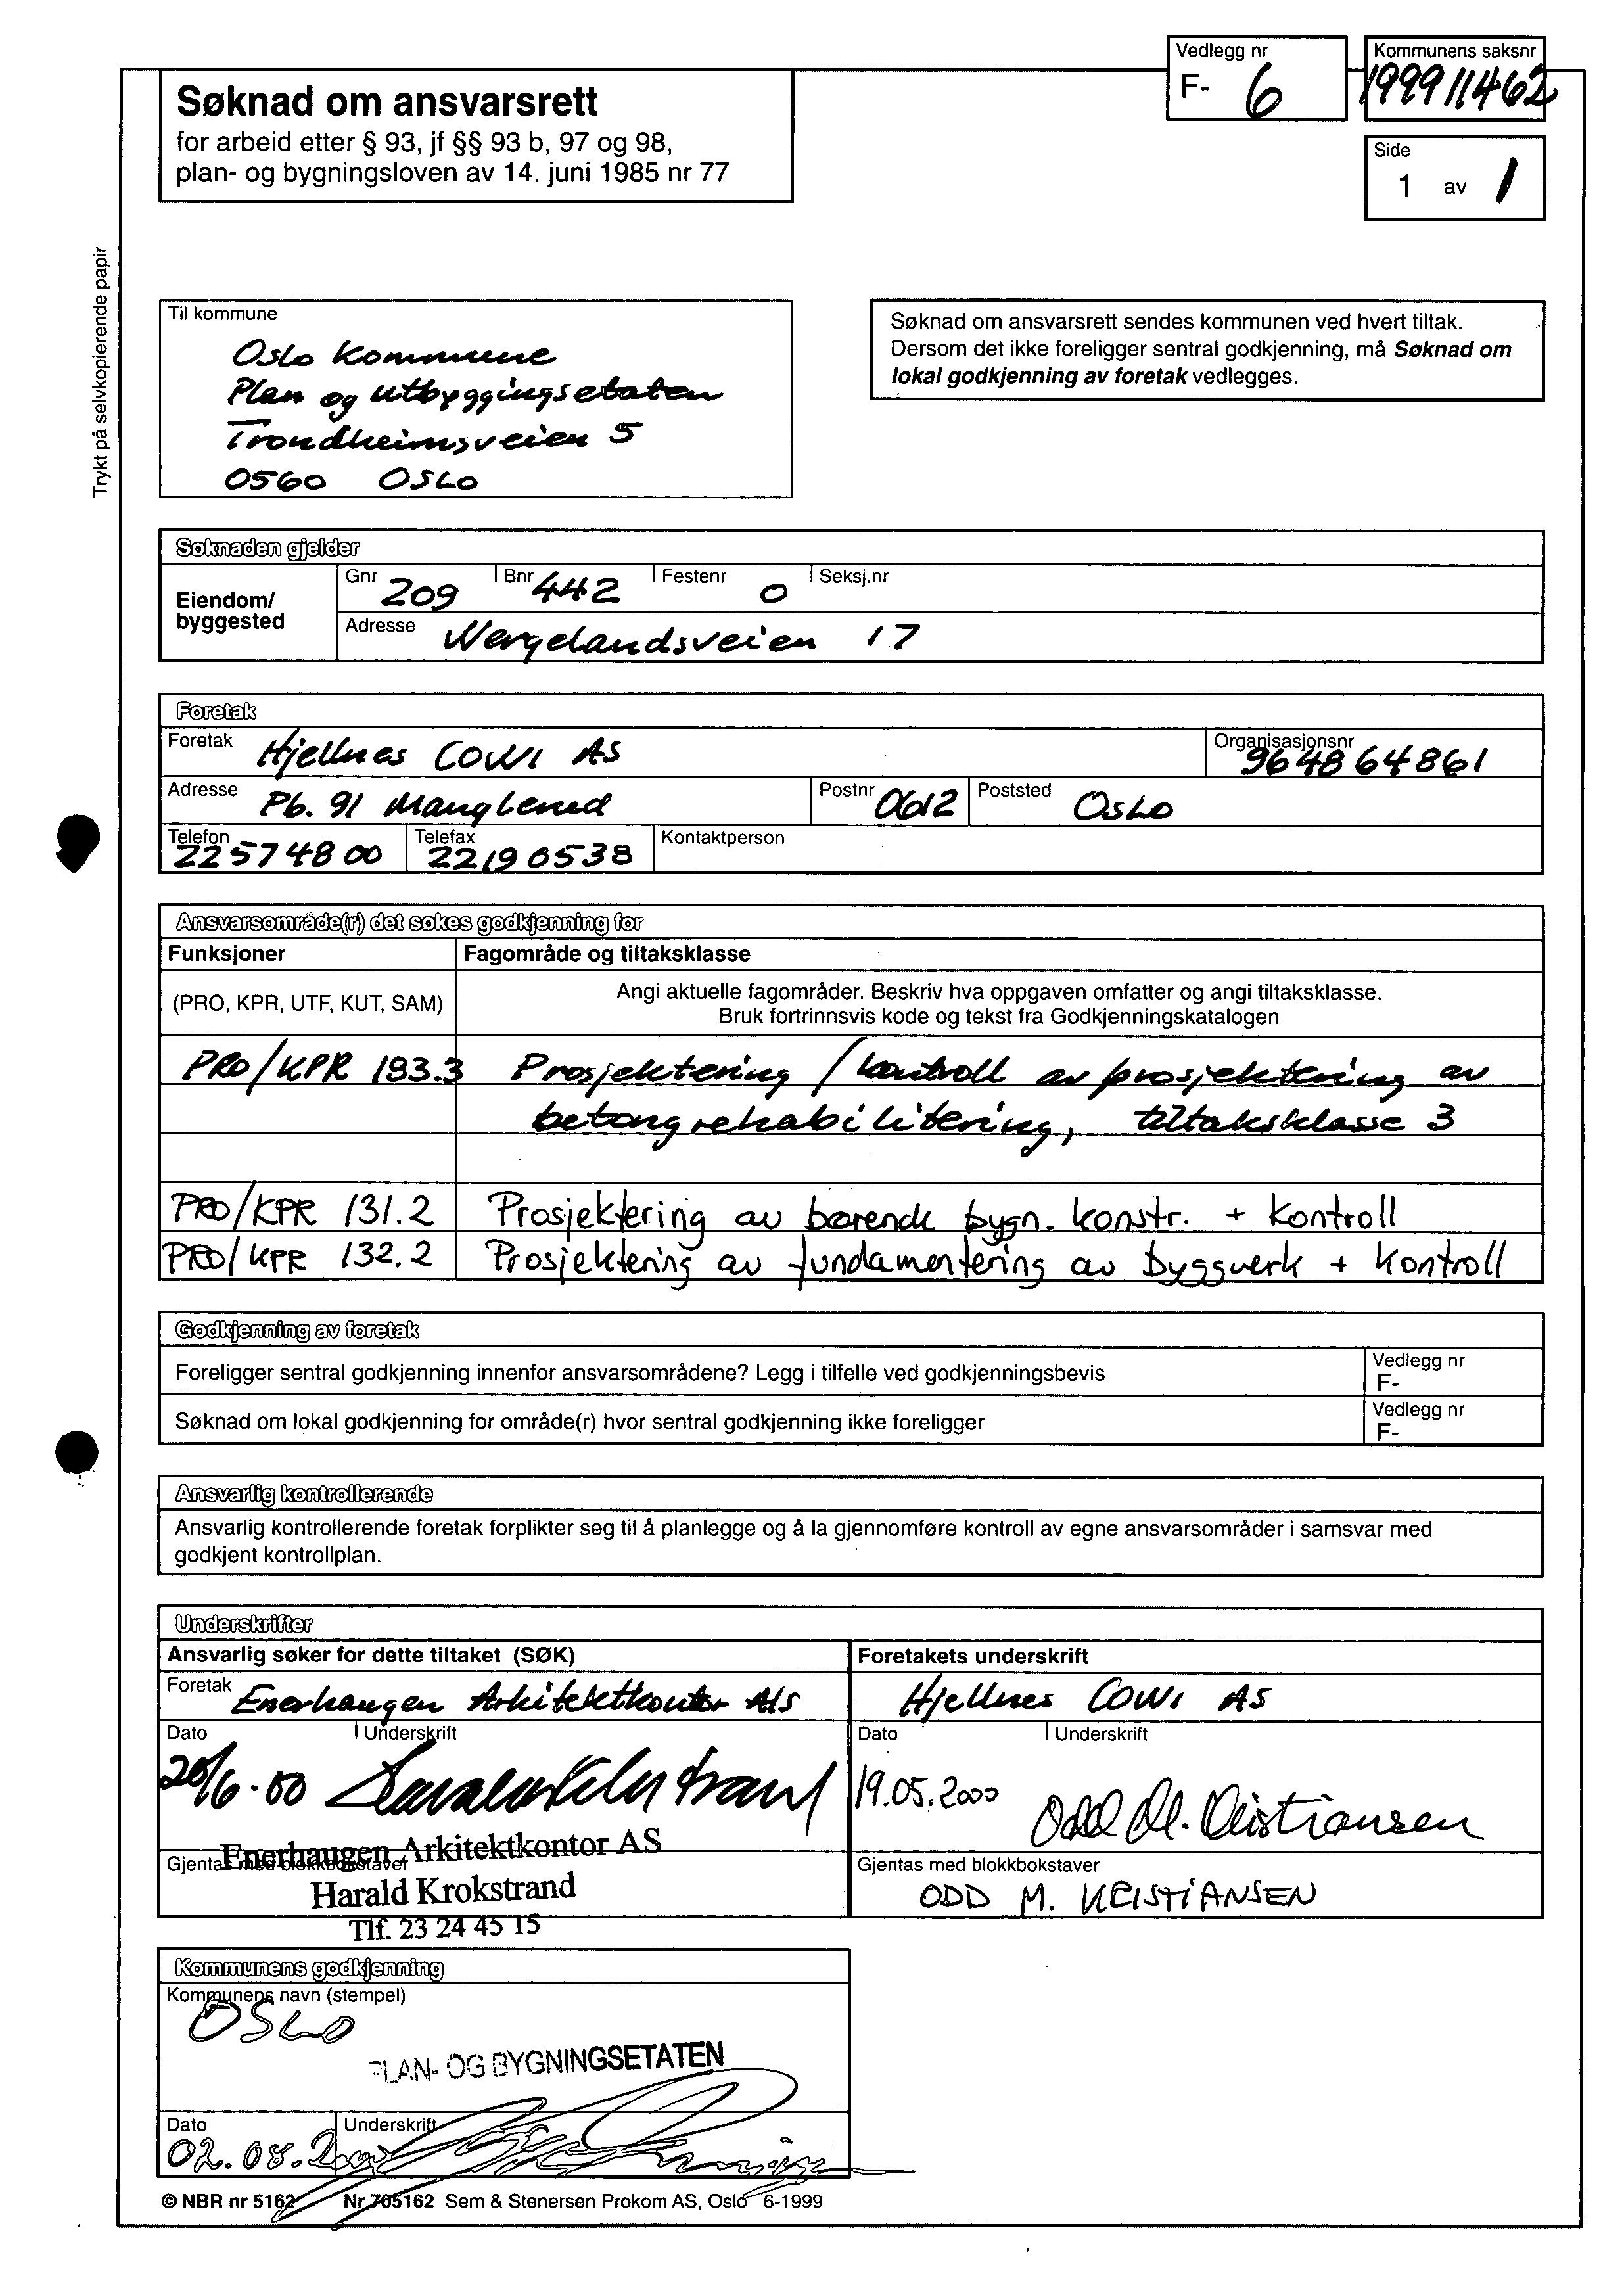 Vedlegg nr
F- 6
Kommunens saksnr
199911462
Søknad om ansvarsrett
for arbeid etter § 93, jf §§ 93 b, 97 og 98,
plan- og bygningsloven av 14. juni 1985 nr 77
Side
1 av 1
Trykt på selvkopierende papir
Til kommune
Oslo Kommune
Plan og utbyggingsetaten
Trondheimsveien 5
0560 OSLO
Søknad om ansvarsrett sendes kommunen ved hvert tiltak.
Dersom det ikke foreligger sentral godkjenning, må Søknad om
lokal godkjenning av foretak vedlegges.
Søknaden gjelder
Eiendom/
byggested
Gnr 209 Bnr 442 Festenr 0 Seksj.nr
Adresse Wergelandsveien 17
Foretak
Foretak Hjellnes COWI AS Organisasjonsnr 964864861
Adresse Pb. 91 Manglerud Postnr 0612 Poststed Oslo
Telefon 22574800 Telefax 22190538 Kontaktperson
Ansvarsområde(r) det søkes godkjenning for
Funksjoner Fagområde og tiltaksklasse
(PRO, KPR, UTF, KUT, SAM)
Angi aktuelle fagområder. Beskriv hva oppgaven omfatter og angi tiltaksklasse.
Bruk fortrinnsvis kode og tekst fra Godkjenningskatalogen
PRO/KPR 183.3 Prosjektering / kontroll av prosjektering av
betongrehabilitering, tiltaksklasse 3
PRO/KPR 131.2 Prosjektering av bærende bygn. konstr. + kontroll
PRO/KPR 132.2 Prosjektering av fundamentering av byggverk + kontroll
Godkjenning av foretak
Foreligger sentral godkjenning innenfor ansvarsområdene? Legg i tilfelle ved godkjenningsbevis
Vedlegg nr
F-
Søknad om lokal godkjenning for område(r) hvor sentral godkjenning ikke foreligger
Vedlegg nr
F-
Ansvarlig kontrollerende
Ansvarlig kontrollerende foretak forplikter seg til å planlegge og å la gjennomføre kontroll av egne ansvarsområder i samsvar med
godkjent kontrollplan.
Underskrifter
Ansvarlig søker for dette tiltaket (SØK)
Foretak Enerhaugen Arkitektkontor A/S
Dato Underskrift
20/6-00 Harald Krokstrand
Enerhaugen Arkitektkontor AS
Gjentas med blokkbokstaver
Harald Krokstrand
Tlf. 23 24 45 15
Foretakets underskrift
Hjellnes COWI AS
Dato Underskrift
19.05.2000 Odd M. Kristiansen
Gjentas med blokkbokstaver
ODD M. KRISTIANSEN
Kommunens godkjenning
Kommunens navn (stempel)
OSLO
PLAN- OG BYGNINGSETATEN
Dato Underskrift
02.08.2000
© NBR nr 5162 Nr 705162 Sem & Stenersen Prokom AS, Oslo 6-1999